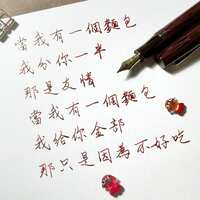 當我有一個麵包
我分你一半
那是友情
當我有一個麵包
我給你全部
那只是因為不好吃